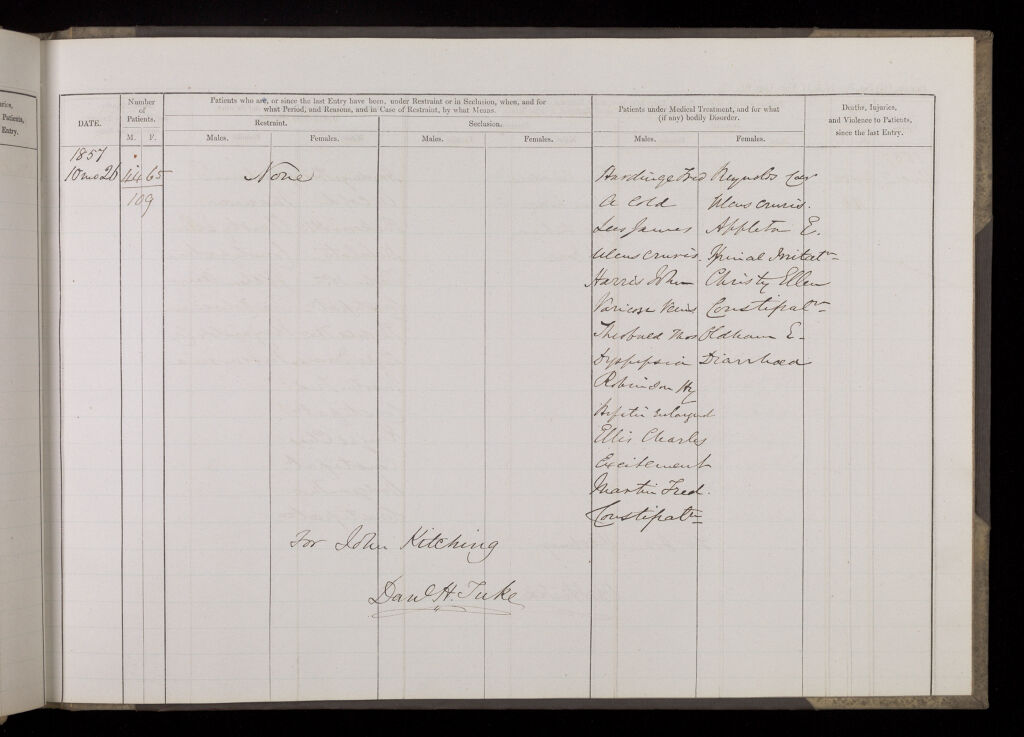 aries,
Patients,
Entry.
DATE.
Number
of
Patients.
M. F.
Patients who are, or since the last Entry have been, under Restraint or in Seclusion, when, and for
what Period, and Reasons, and in Case of Restraint, by what Means.
Restraint.
Seclusion.
Males. Females. Males. Females.
Patients under Medical Treatment, and for what
(if any) bodily Disorder.
Males. Females.
Deaths, Injuries,
and Violence to Patients,
since the last Entry.
1857
10 mo 26 44 65 None Hardinge Fred Reynolds
109 A Cold Ulcus cruris.
Lees James Appleton E.
Ulcus cruris. Spinal Irritatn
Harris John Christy Ellen
Varicose Veins Constipatn
Theobald Thos Oldham E.
Dyspepsia Diarrhoea
Robinson Hy
enlarged
Ellis Charles
Excitement
Martin Fred.
Constipatn
For John Kitching
Danl H. Tuke